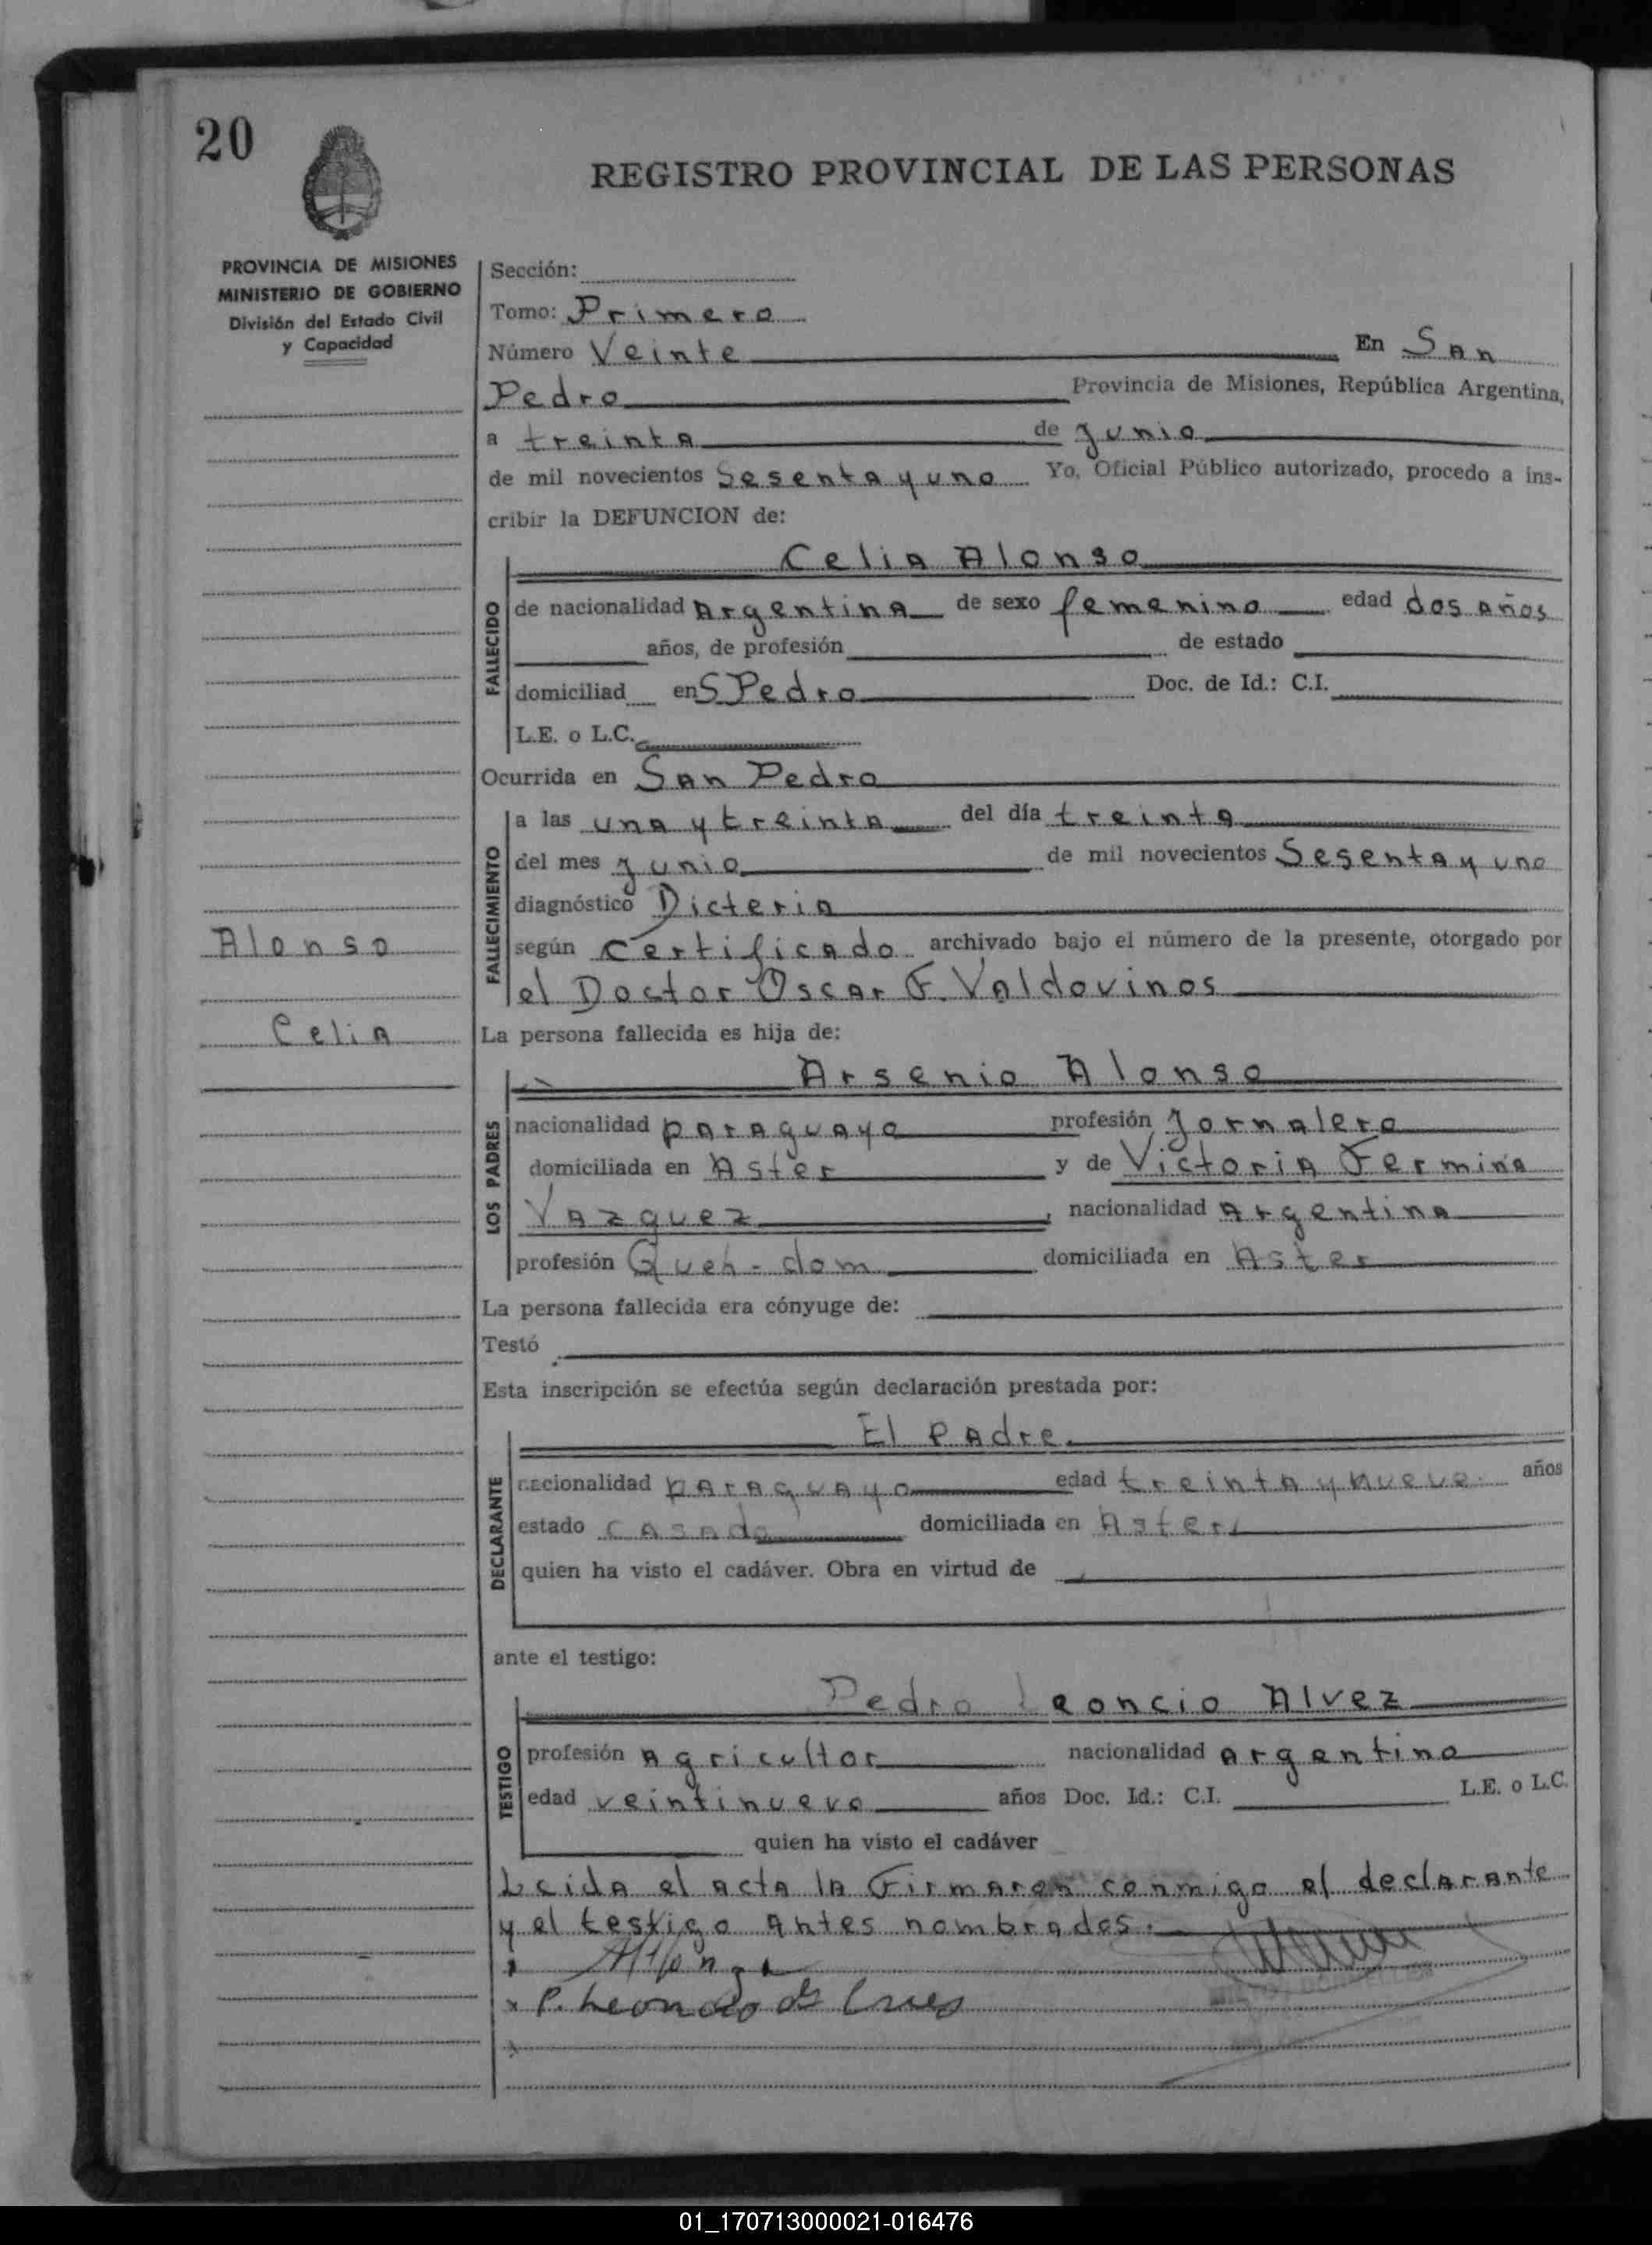 20
REGISTRO PROVINCIAL DE LAS PERSONAS
PROVINCIA DE MISIONES
MINISTERIO DE GOBIERNO
División del Estado Civil
y Capacidad
Alonso
Celia
Sección:
Tomo: Primero
Número Veinte En San
Pedro Provincia de Misiones, República Argentina,
a treinta de junio
de mil novecientos Sesenta y uno Yo, Oficial Público autorizado, procedo a ins-
cribir la DEFUNCION de:
Celia Alonso
FALLECIDO
de nacionalidad Argentina de sexo femenino edad dos años
años, de profesión de estado
domiciliad en S Pedro Doc. de Id.: C.I.
L.E. o L.C.
Ocurrida en San Pedro
FALLECIMIENTO
a las una y treinta del día treinta
del mes junio de mil novecientos Sesenta y uno
diagnóstico Dicteria
según certificado archivado bajo el número de la presente, otorgado por
el Doctor Oscar F. Valdovinos
La persona fallecida es hija de:
Arsenio Alonso
LOS PADRES
nacionalidad paraguayo profesión Jornalero
domiciliada en Aster y de Victoria Fermina
Vazquez, nacionalidad Argentina
profesión Queh-dom domiciliada en Aster
La persona fallecida era cónyuge de:
Testó
Esta inscripción se efectúa según declaración prestada por:
El Padre.
DECLARANTE
nacionalidad paraguayo edad treinta y nueve años
estado casado domiciliada en Aster
quien ha visto el cadáver. Obra en virtud de
ante el testigo:
Pedro Leoncio Alvez
TESTIGO
profesión Agricultor nacionalidad argentino
edad veintinueve años Doc. Id.: C.I. L.E. o L.C.
quien ha visto el cadáver
Leida el acta la Firmaron conmigo el declarante
y el testigo antes nombrados.
01_170713000021-016476